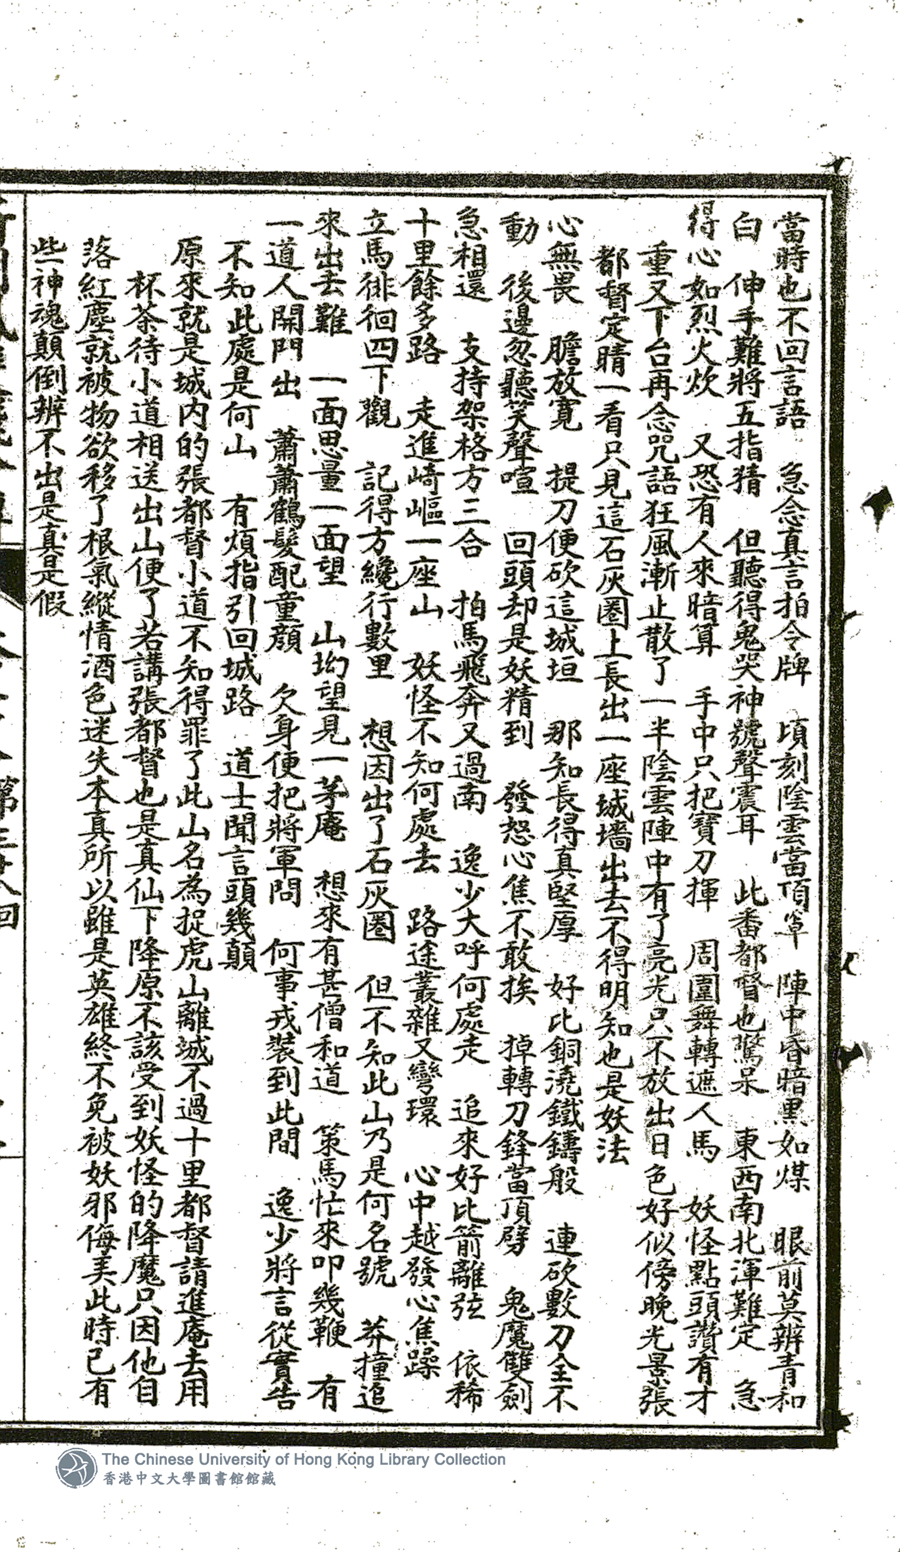 當時也不回言語　急念真言拍令牌　頃刻陰雲當頂罩　陣中昏暗黑如煤　眼前莫辨青和
白　伸手難將五指猜　但聽得鬼哭神號聲震耳　此番都督也驚呆　東西南北渾難定　急
得心如烈火炊　又恐有人來暗算　手中只把寶刀揮　周圍舞轉遮人馬　妖怪點頭讚有才
重又下台再念咒語狂風漸止散了一半陰雲陣中有了亮光只不放出日色好似傍晚光景張
都督定睛一看只見這石灰圈上長出一座城墻出去不得明知也是妖法
心無畏　膽放寬　提刀便砍這城垣　那知長得真堅厚　好比銅澆鐵鑄般　連砍數刀全不
動　後邊忽聽笑聲喧　回頭却是妖精到　發怒心焦不敢挨　掉轉刀鋒當頂劈　鬼魔雙劍
急相還　支持架格方三合　拍馬飛奔又過南　逸少大呼何處走　追來好比箭離弦　依稀
十里餘多路　走進崎嶇一座山　妖怪不知何處去　路途叢雜又彎環　心中越發心焦躁
立馬徘徊四下觀　記得方纔行數里　想因出了石灰圈　但不知此山乃是何名號　莽撞追
來出去難　一面思量一面望　山坳望見一茅庵　想來有甚僧和道　策馬忙來叩幾鞭　有
一道人開門出　蕭蕭鶴髮配童顏　欠身便把將軍問　何事戎裝到此間　逸少將言從實告
不知此處是何山　有煩指引回城路　道士聞言頭幾顛
原來就是城內的張都督小道不知得罪了此山名為捉虎山離城不過十里都督請進庵去用
杯茶待小道相送出山便了若講張都督也是真仙下降原不該受到妖怪的降魔只因他自
落紅塵就被物欲移了根氣縱情酒色迷失本真所以雖是英雄終不免被妖邪侮弄此時已有
些神魂顛倒辨不出是真是假
The Chinese University of Hong Kong Library Collection
香港中文大學圖書館館藏